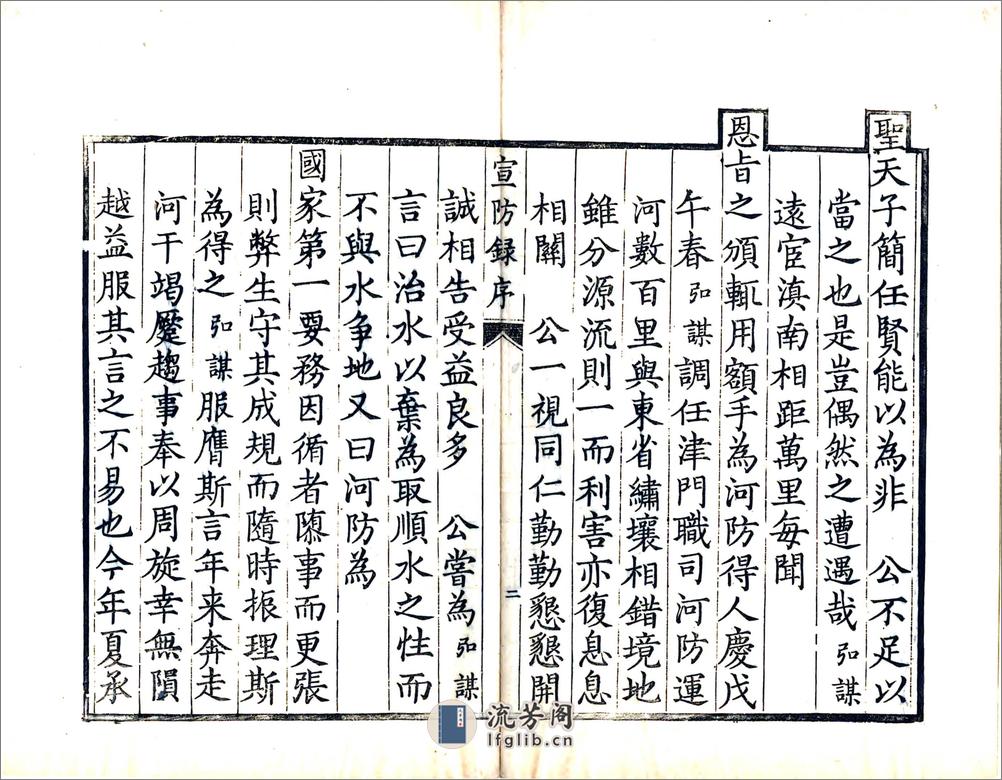 聖天子簡任賢能以為非　公不足以
當之也是豈偶然之遭遇哉弘謀
遠宦滇南相距萬里每聞
恩旨之頒輒用額手為河防得人慶戊
午春弘謀調任津門職司河防運
河數百里與東省繡壤相錯境地
雖分源流則一而利害亦復息息
相關　公一視同仁勤勤懇懇開
宣防録序
二
誠相告受益良多　公嘗為弘謀
言曰治水以棄為取順水之性而
不與水争地又曰河防為
國家第一要務因循者隳事而更張
則弊生守其成規而隨時振理斯
為得之弘謀服膺斯言年来奔走
河干竭蹷趨事奉以周旋幸無隕
越益服其言之不易也今年夏承
流芳阁
lfglib.cn